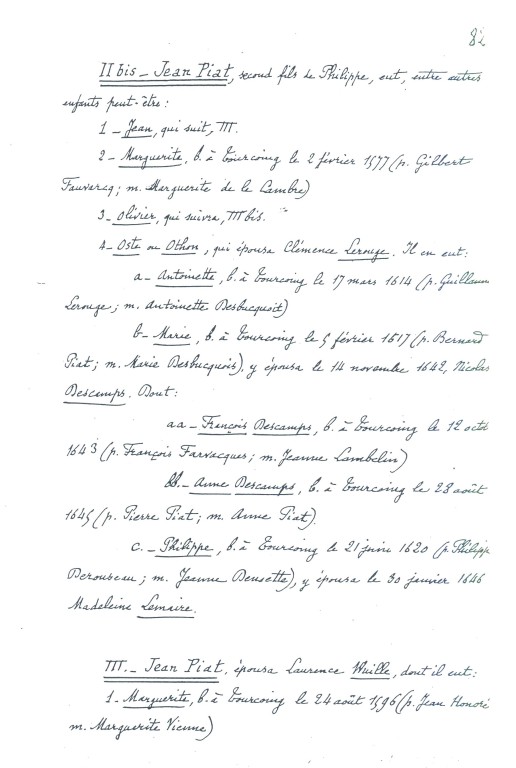 82
II bis - Jean Piat, second fils de Philippe, eut, entre autres
enfants peut-être :
1 - Jean, qui suit, III.
2 - Marguerite, b. à Tourcoing le 2 février 1577 (p. Gilbert
Fauvarcq ; m. Marguerite de le Cambre)
3 - Olivier, qui suivra, III bis.
4 - Oste ou Othon, qui épousa Clémence Lerouge. Il en eut :
a - Antoinette, b. à Tourcoing le 17 mars 1614 (p. Guillaum
Lerouge ; m. Antoinette Desbucquoit)
b - Marie, b. à Tourcoing le 5 février 1617 (p. Bernard
Piat ; m. Marie Desbucquois), y épousa le 14 novembre 1642, Nicolas
Descamps. Dont :
aa - François Descamps, b. à Tourcoing le 12 octo
1643 (p. François Farvacques ; m. Jeanne Lambelin)
bb. - Anne Descamps, b. à Tourcoing le 28 août
1645 (p. Pierre Piat ; m. Anne Piat).
c. - Philippe, b. à Tourcoing le 21 juin 1620 (p. Philipp
Derousseau ; m. Jeanne Deusette), y épousa le 30 janvier 1646
Madeleine Lemaire.
III. - Jean Piat, épousa Laurence Wuille, dont il eut :
1 - Marguerite, b. à Tourcoing le 24 août 1596 (p. Jean Honoré
m. Marguerite Vienne)